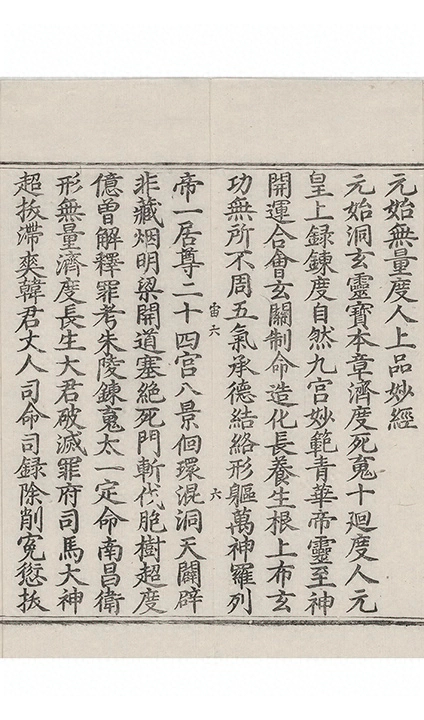 元始無量度人上品妙經
元始洞玄靈寶本章濟度死䰟十廻度人元
皇上録鍊度自然九宮妙範青華帝靈至神
開運合會玄關制命造化長養生根上布玄
功無所不周五氣承德結絡形軀萬神羅列
宙六 六
帝一居尊二十四宮八景佪環混洞天闢辟
非藏烟明梁開道塞絕死門斬伐胞樹超度
億曾解釋罪考朱陵鍊䰟太一定命南昌衛
形無量濟度長生大君破滅罪府司馬大神
超拔滯爽韓君丈人司命司録除削冤愆拔